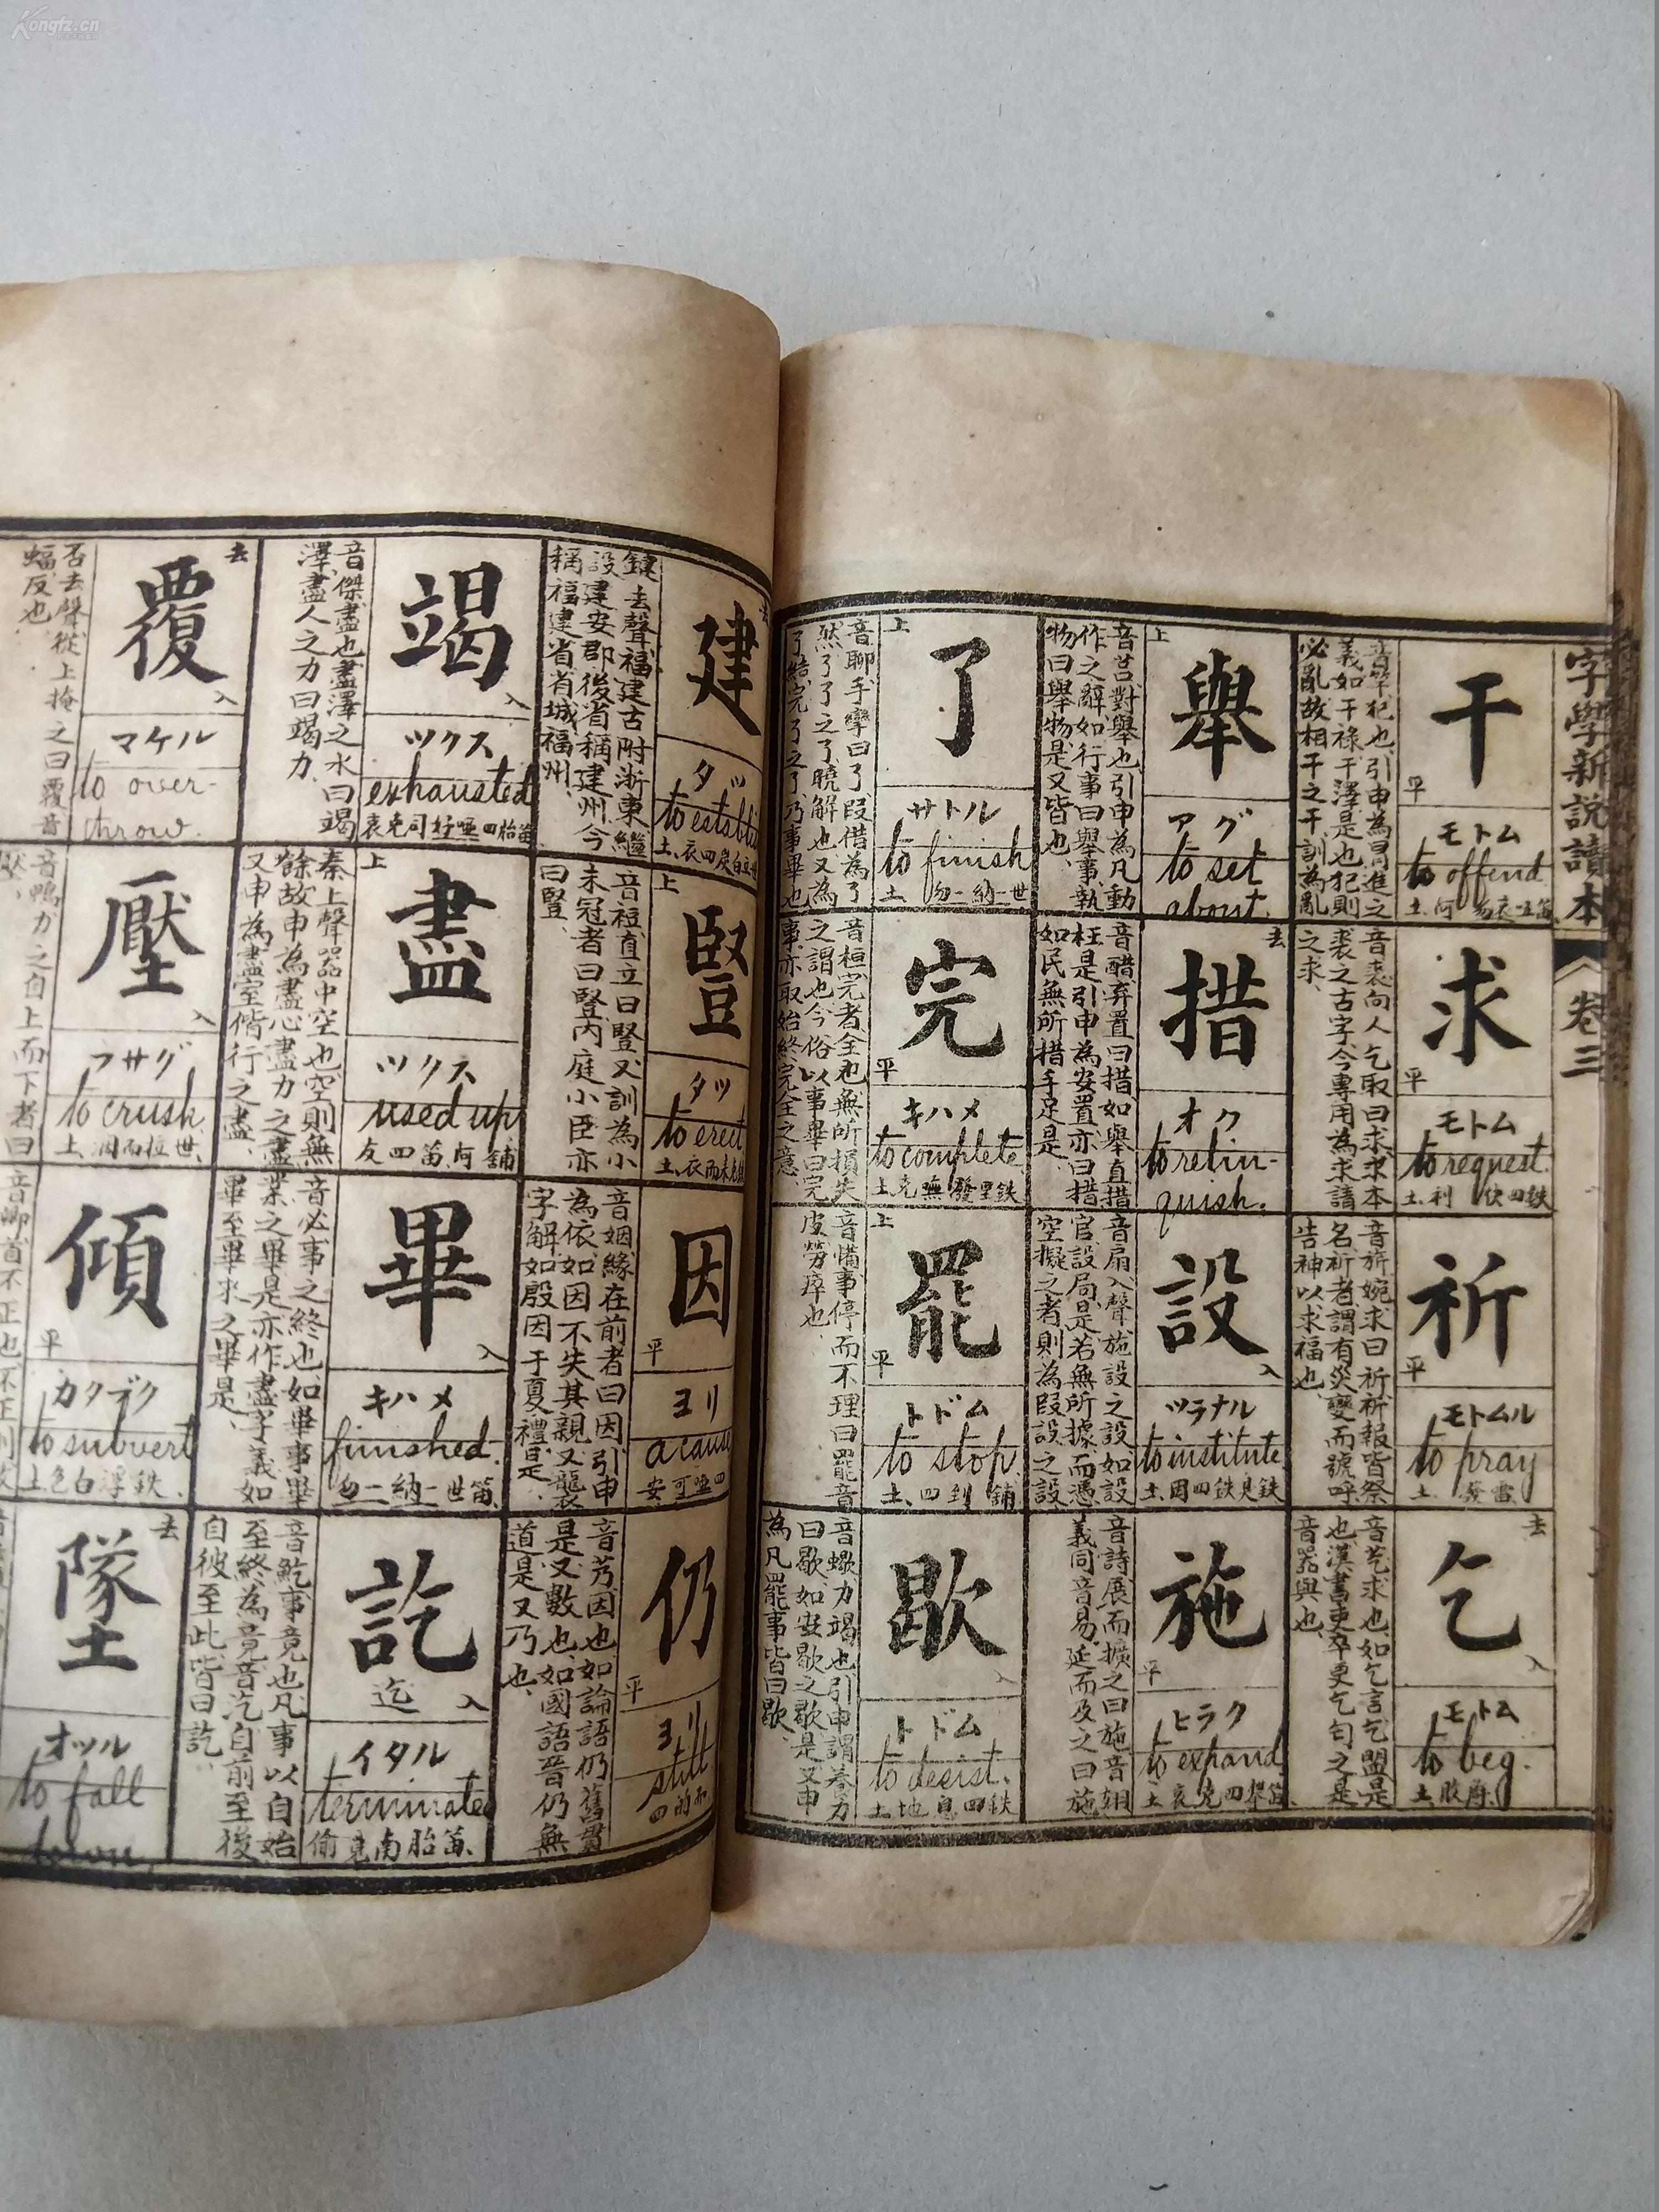 Kongfz.cn
字學新説讀本
卷三
干
平
モトム
to offend
音竿犯也引申為冒進之
義如干祿干澤是也犯則
必亂故相干之干訓為亂
求
平
モトム
to request.
音裘向人乞取曰求求本
裘之古字今專用為求請
之求
祈
平
モトムル
to pray
音旂婉求曰祈祈報皆祭
名祈者謂有災變而號呼
告神以求福也
去
乞
入
モトム
to beg.
音芞求也如乞言乞盟是
也漢書吏卒更乞匄之是
音器與也
上
舉
アグ
to set
about.
音莒對舉也引申為凡動
作之辭如行事曰舉事執
物曰舉物是又皆也
去
措
オク
to relin-
quish.
音醋弃置曰措如舉直措
枉是引申為安置亦曰措
如民無所措手足是
設
入
ツラナル
to institute
土因四鉄貝鉄
音扇入聲施設之設如設
官設局是若無所據而憑
空擬之者則為叚設之設
施
平
ヒラク
to expand
音詩展而擴之曰施音翅
義同音易延而及之曰施
上
了
サトル
to finish
土勿二納一世
音聊手攣曰了叚借為了
然了了之了曉解也又為
了結完了之了乃事畢也
完
平
キハメ
to complete
音桓完者全也無所損失
之謂也今俗以事畢曰完
事亦取始終完全之意
上
罷
平
トドム
to stop.
土四到鋪
音備事停而不理曰罷音
皮勞瘁也
歇
入
トドム
to desist.
土地息四鉄
音蠍力竭也引申謂養力
曰歇如安歇之歇是又申
為凡罷事皆曰歇
去
建
タツ
to establis
鍵去聲福建古附浙東繼
設建安郡後省稱建州今
稱福建省省城福州
上
豎
タツ
to erect
音裋直立曰豎又訓為小
未冠者曰豎內庭小臣亦
曰豎
因
平
ヨリ
a cause
安可啞四
音姻緣在前者曰因引申
為依如因不失其親又襲
字解如殷因于夏禮是
仍
平
ヨリ
still
四的而
音艿因也如論語仍舊貫
是又數也如國語晉仍無
道是又乃也
竭
入
ツクス
exhausted
音傑盡也盡澤之水曰竭
澤盡人之力曰竭力
上
盡
ツクス
used up
友四笛阿鋪
秦上聲器中空也空則無
餘故申為盡心盡力之盡
又申為盡室偕行之盡
畢
入
キハメ
finished.
勿二納一世笛
音必事之終也如畢事畢
業之畢是亦作盡字義如
畢至畢求之畢是
訖
迄
入
イタル
terminated
偷克南胎笛
音鈋事竟也凡事以自始
至終為竟音汔自前至後
自彼至此皆曰訖
去
覆
入
マケル
to over-
throw.
否去聲從上掩之曰覆音
蝠反也
壓
入
フサグ
to crush
音鴨力之自上而下者曰
傾
平
カタブク
to subvert
土色白浮鉄
音卿首不正也不正則
去
墜
オツル
to fall
down.